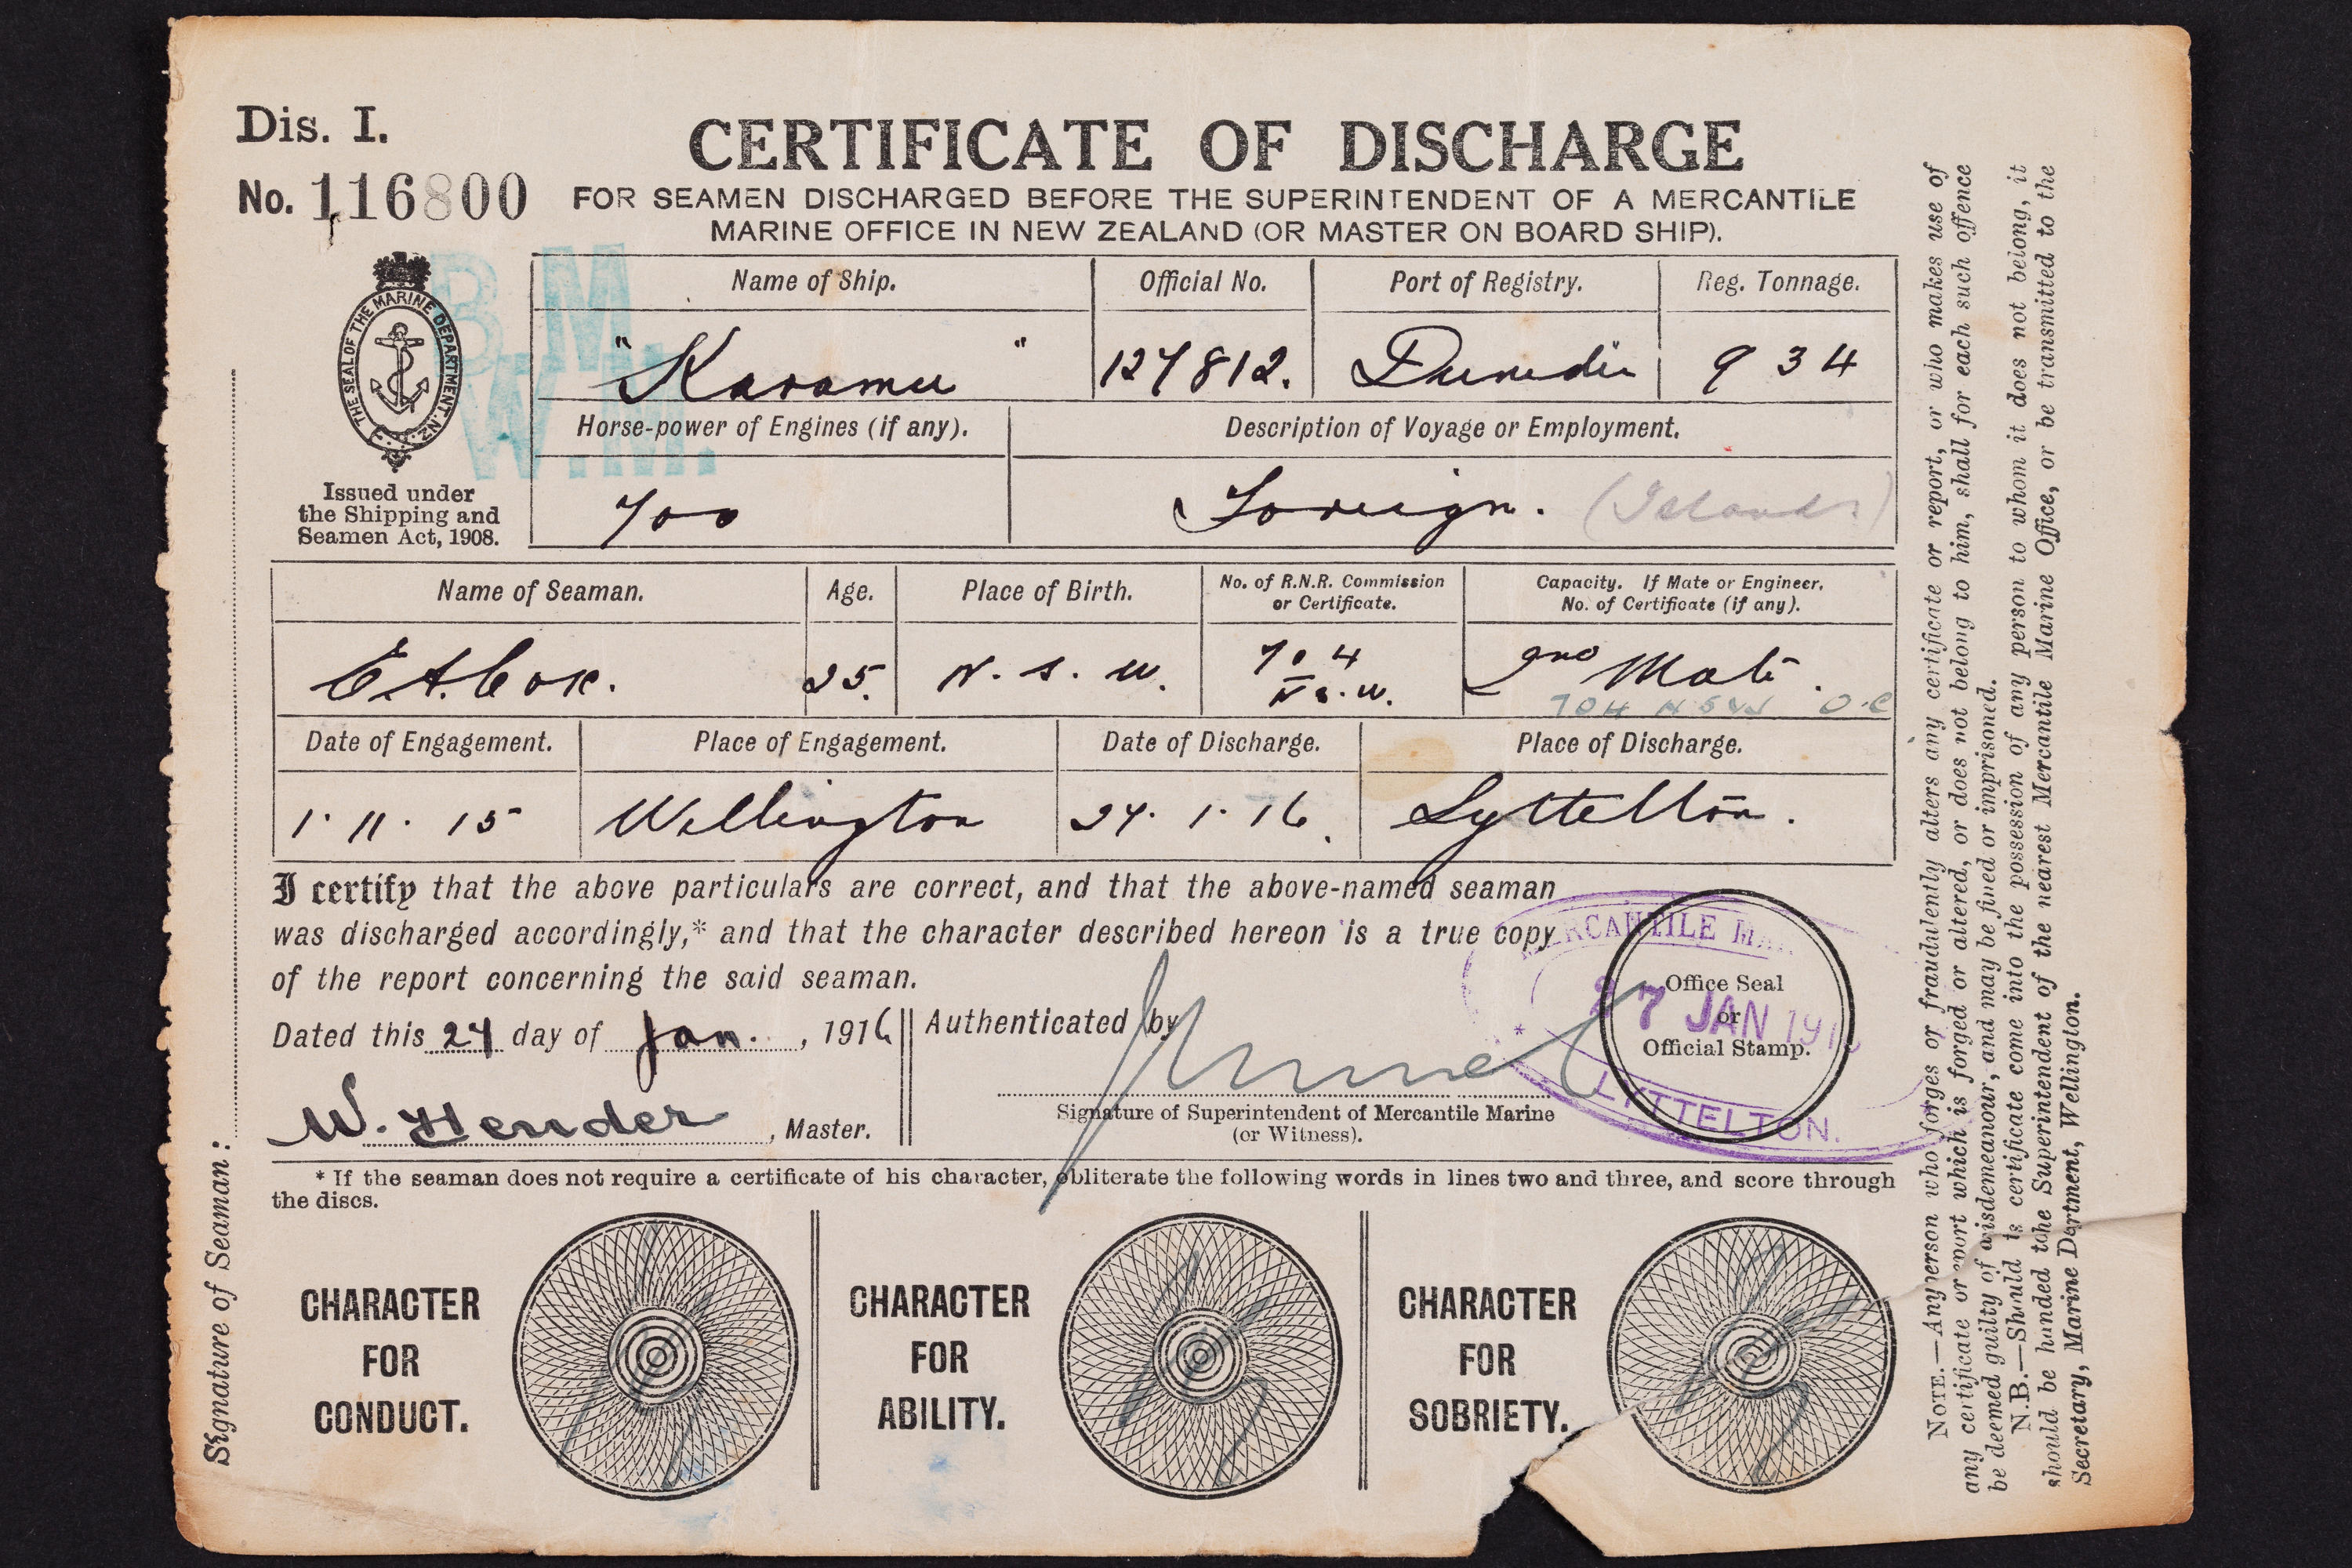 Dis. I.
No. 116800
CERTIFICATE OF DISCHARGE
FOR SEAMEN DISCHARGED BEFORE THE SUPERINTENDENT OF A MERCANTILE
MARINE OFFICE IN NEW ZEALAND (OR MASTER ON BOARD SHIP).
THE SEAL OF THE MARINE DEPARTMENT. N.Z.
B.M.
W.M.
Issued under
the Shipping and
Seamen Act, 1908.
Name of Ship. Official No. Port of Registry. Reg. Tonnage.
"Karamu" 127812. Dunedin 934
Horse-power of Engines (if any). Description of Voyage or Employment.
700 Foreign. (Islands)
Name of Seaman. Age. Place of Birth. No. of R.N.R. Commission or Certificate. Capacity. If Mate or Engineer, No. of Certificate (if any).
E A. Cox. 25. N. S. W. 704 N S. W. 2nd Mate.
704 N S W O.C
Date of Engagement. Place of Engagement. Date of Discharge. Place of Discharge.
1. 11. 15 Wellington 27. 1. 16. Lyttelton.
I certify that the above particulars are correct, and that the above-named seaman
was discharged accordingly,* and that the character described hereon is a true copy
of the report concerning the said seaman.
Dated this 27 day of Jan. , 1916
W. Hender, Master.
Authenticated by
Signature of Superintendent of Mercantile Marine
(or Witness).
Office Seal
or
Official Stamp.
MERCANTILE
27 JAN 191
LYTTELTON.
* If the seaman does not require a certificate of his character, obliterate the following words in lines two and three, and score through
the discs.
CHARACTER
FOR
CONDUCT.
CHARACTER
FOR
ABILITY.
CHARACTER
FOR
SOBRIETY.
Signature of Seaman:
NOTE.—Any person who forges or fraudulently alters any certificate or report, or who makes use of
any certificate or report which is forged or altered, or does not belong to him, shall for each such offence
be deemed guilty of a misdemeanour, and may be fined or imprisoned.
N.B.—Should this certificate come into the possession of any person to whom it does not belong, it
should be handed to the Superintendent of the nearest Mercantile Marine Office, or be transmitted to the
Secretary, Marine Department, Wellington.